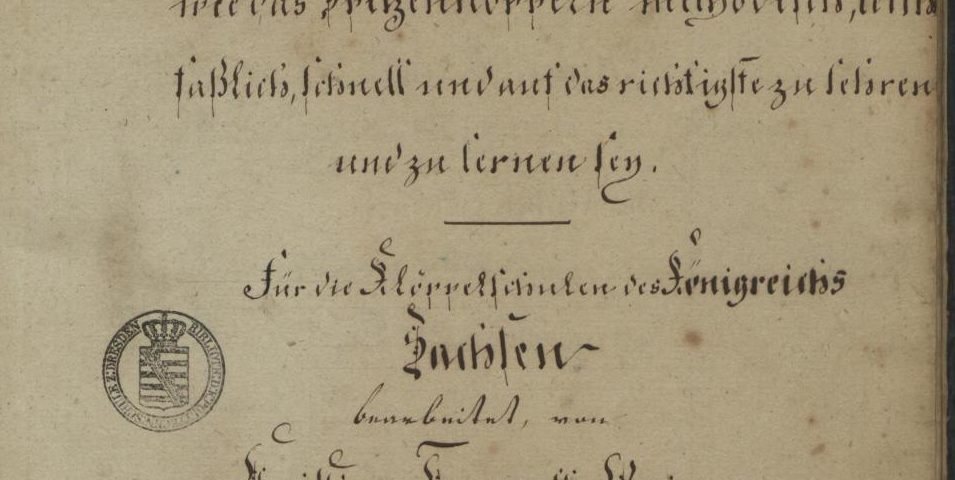 wie das Spitzenklöppeln methodisch,
faßlich, schnell und auf das richtigste zu lehren
und zu lernen sey.
Für die Klöppelschulen des Königreichs
Sachsen
bearbeitet, von
BIBLIOTHEK
Z. DRESDEN